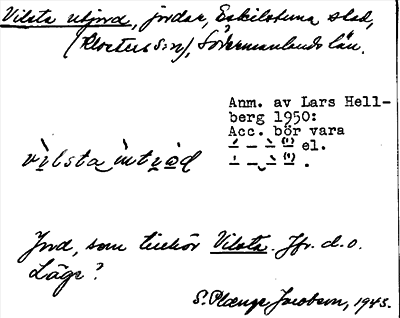 Vilsta utjord, jordar, Eskilstuna stad,
(Klosters s:n), Södermanlands län.
Anm. av Lars Hell-
berg 1950:
Acc. bör vara
el.
vilsta
Jord, som tillhör Vilsta. Jfr. d.o.
Läge?
S. Plænge Jacobson, 1945.